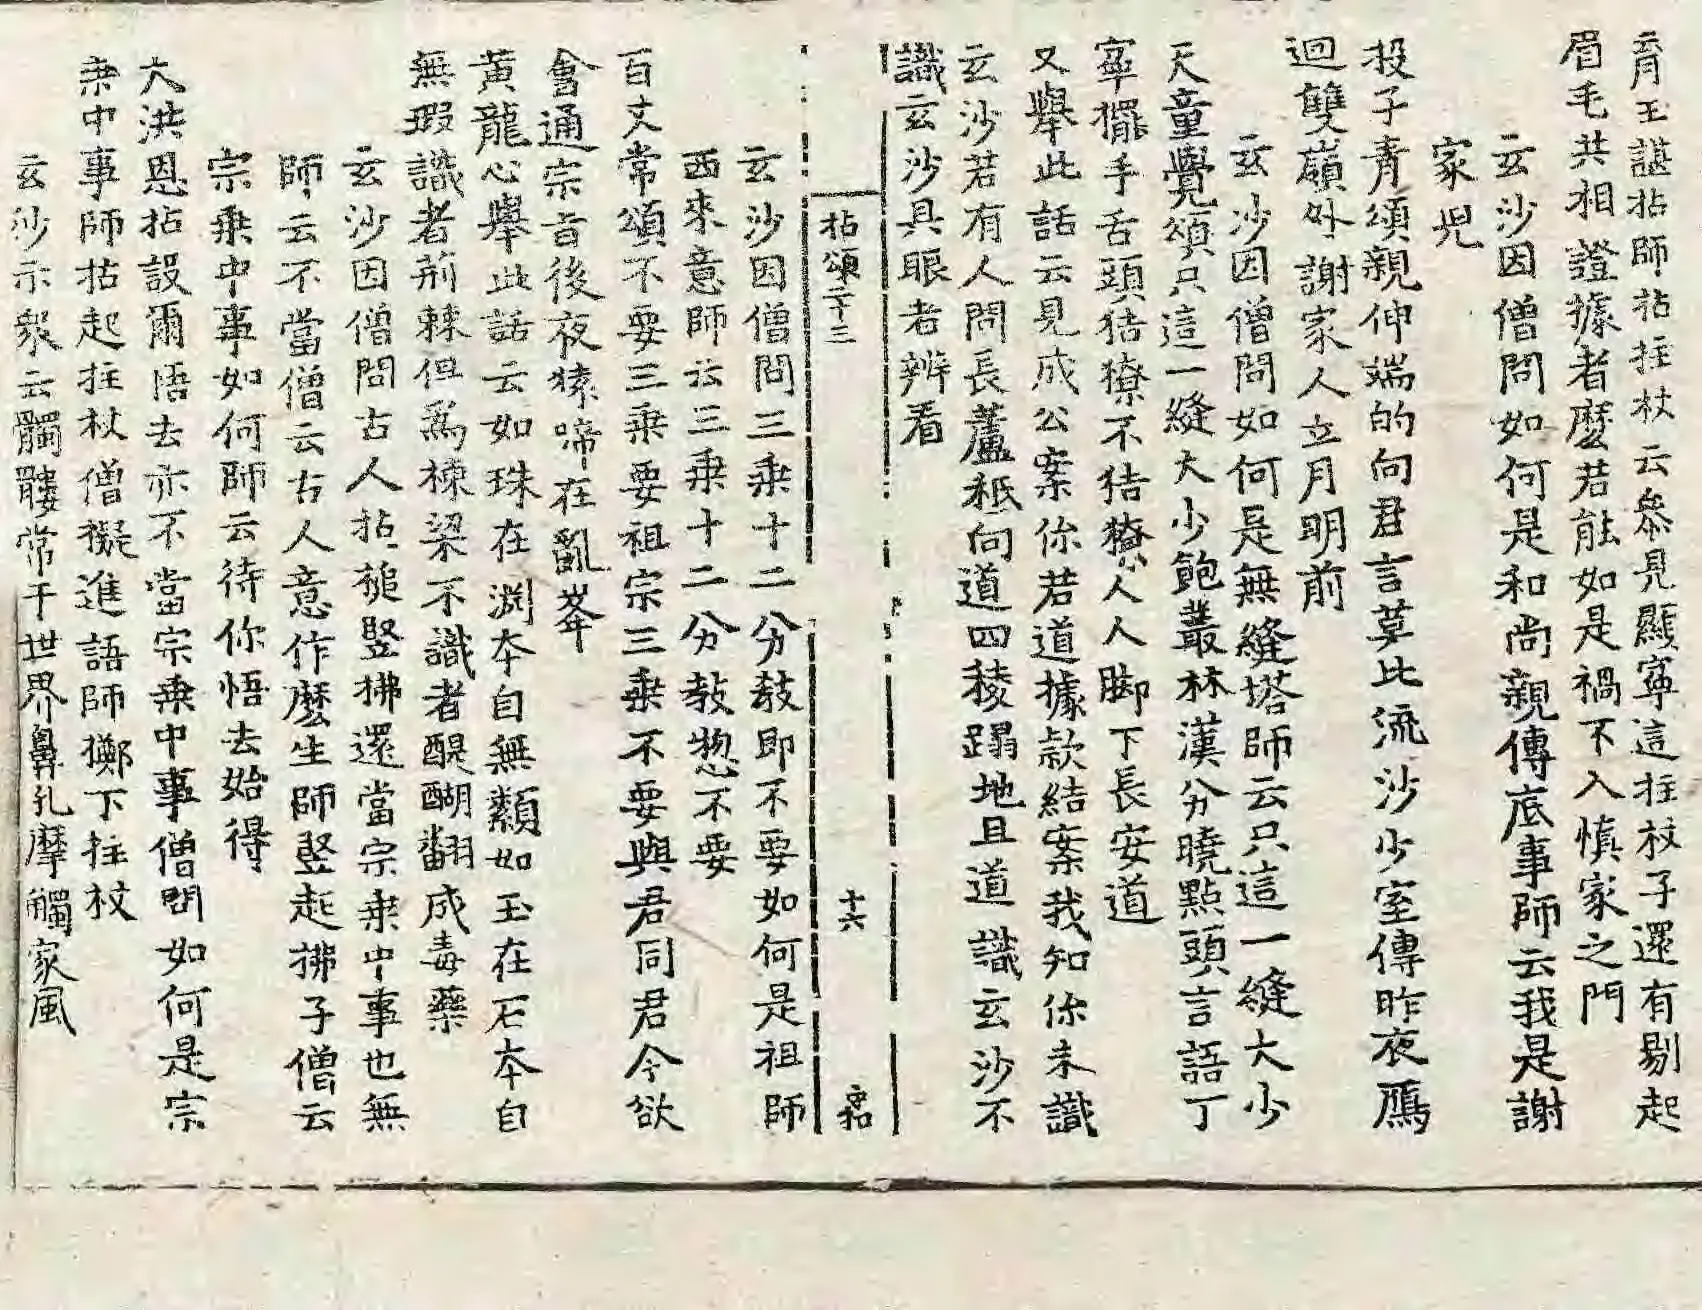 育王諶拈師拈拄杖云叅見顯寧這拄杖子還有剔起
眉毛共相證據者麽若能如是禍不入慎家之門
玄沙因僧問如何是和尚親傳底事師云我是謝
家兒
投子青頌親伸端的向君言莫比流沙少室傳昨夜鴈
迴雙嶺外謝家人立月明前
玄沙因僧問如何是無縫塔師云只這一縫大少
天童覺頌只這一縫大少飽叢林漢分曉點頭言語丁
寧擺手舌頭狤獠不狤獠人人脚下長安道
又舉此話云見成公案你若道據款結案我知你未識
玄沙若有人問長蘆秖向道四稜蹋地且道識玄沙不
識玄沙具眼者辨看
拈頌二十三
十六
玄沙因僧問三乘十二分敎即不要如何是祖師
西來意師云三乘十二分敎惣不要
百丈常頌不要三乘要祖宗三乘不要與君同君今欲
會通宗旨後夜猿啼在亂峯
黃龍心舉此話云如珠在淵本自無纇如玉在石本自
無瑕識者荊棘但爲棟梁不識者醍醐翻成毒藥
玄沙因僧問古人拈槌竪拂還當宗乘中事也無
師云不當僧云古人意作麽生師竪起拂子僧云
宗乘中事如何師云待你悟去始得
大洪恩拈設爾悟去亦不當宗乘中事僧問如何是宗
乘中事師拈起拄杖僧擬進語師擲下拄杖
玄沙示衆云髑髏常干世界鼻孔摩觸家風